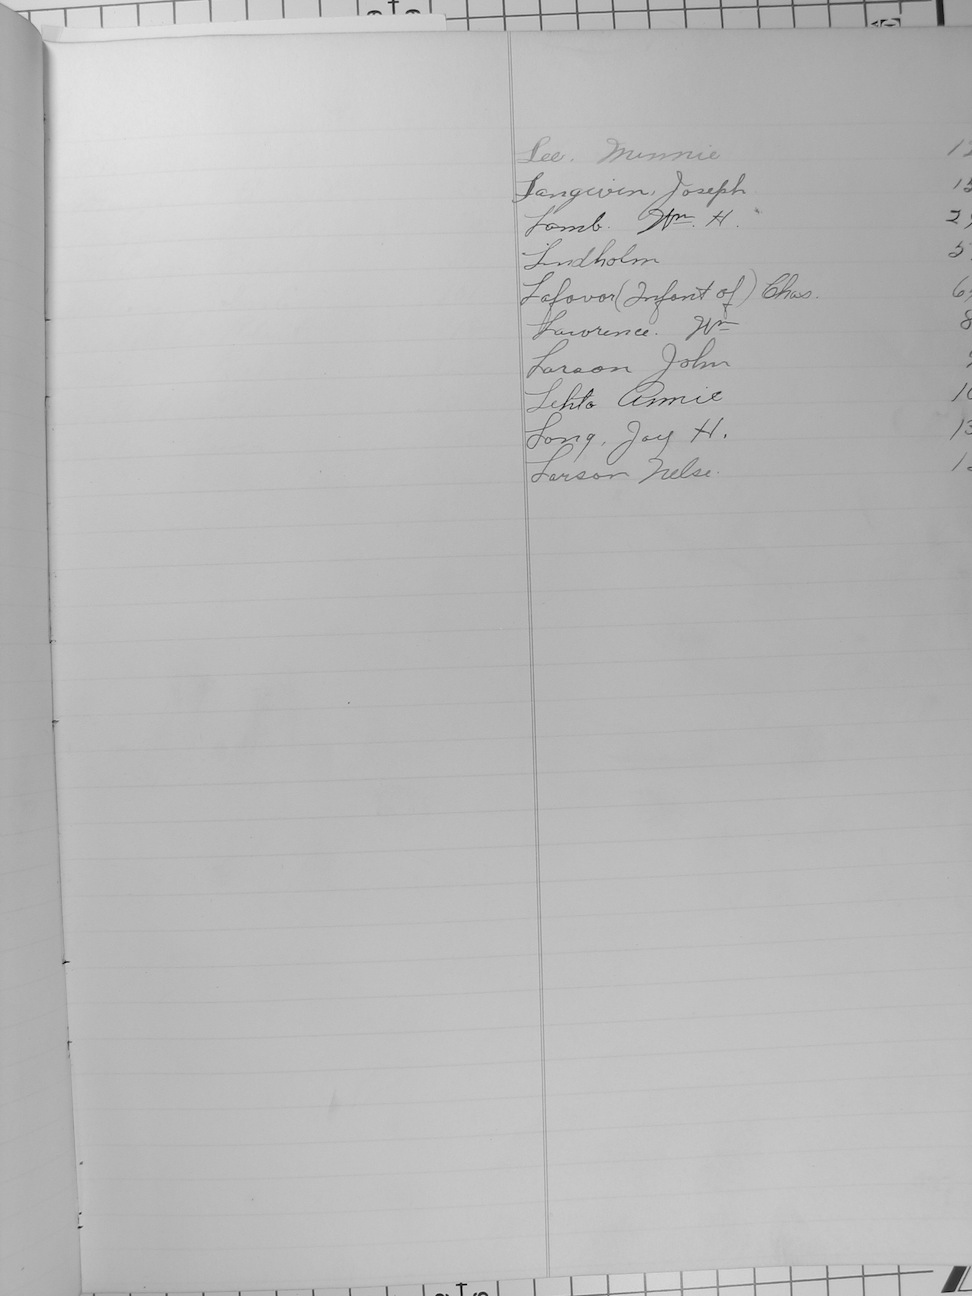 Lee. Minnie
Langivin, Joseph
Lamb. Wm. H.
Lindholm
Lafavor (Infant of) Chas.
Lawrence. Wm
Larson John
Lehto Annie
Long, Jay H.
Larson Nelse.